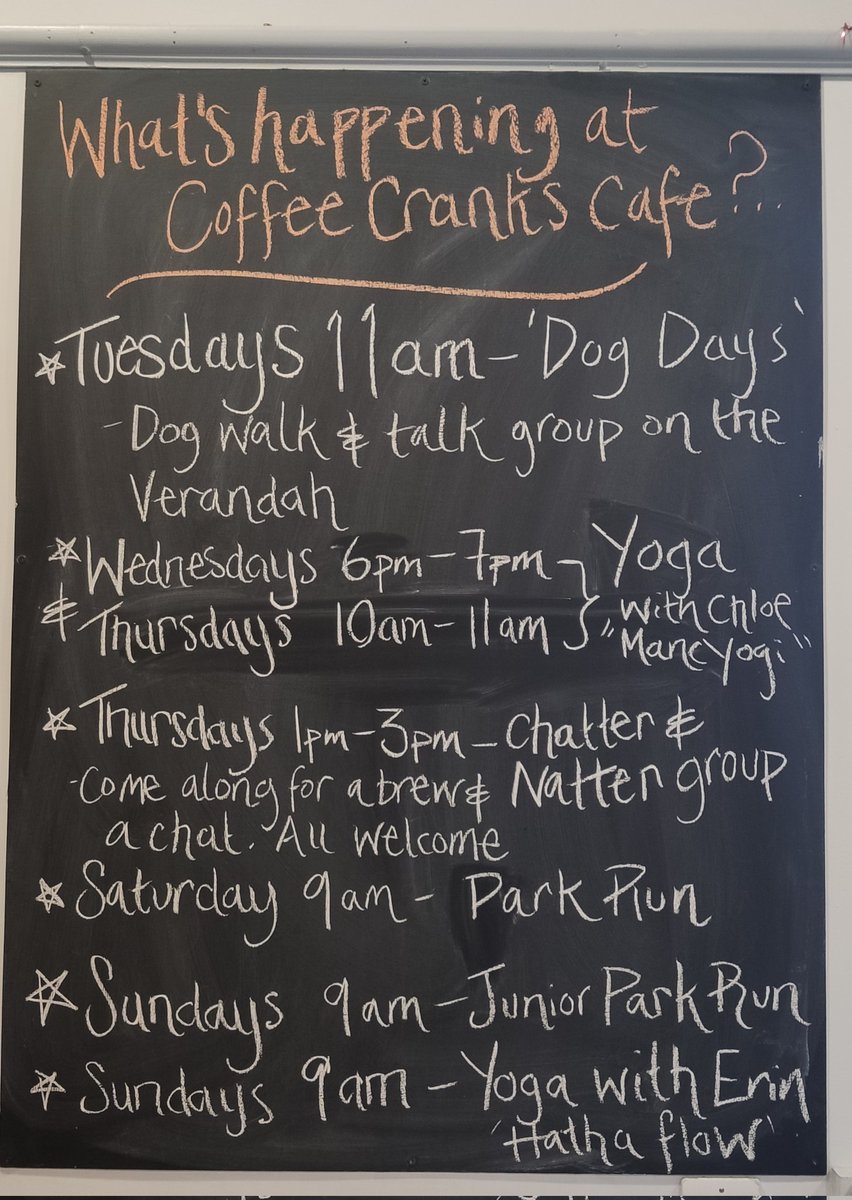 What's happening at
Coffee Cranks Cafe?...
Tuesdays 11am - 'Dog Days'
- Dog walk & talk group on the
Verandah
Wednesdays 6pm - 7pm } Yoga
& Thursdays 10am - 11am } with Chloe
"Mancyogi"
Thursdays 1pm - 3pm - Chatter &
Natten group
- Come along for a brew &
a chat. All welcome
Saturday 9am - Park Run
Sundays 9am - Junior Park Run
Sundays 9am - Yoga with Erin
'Hatha flow'